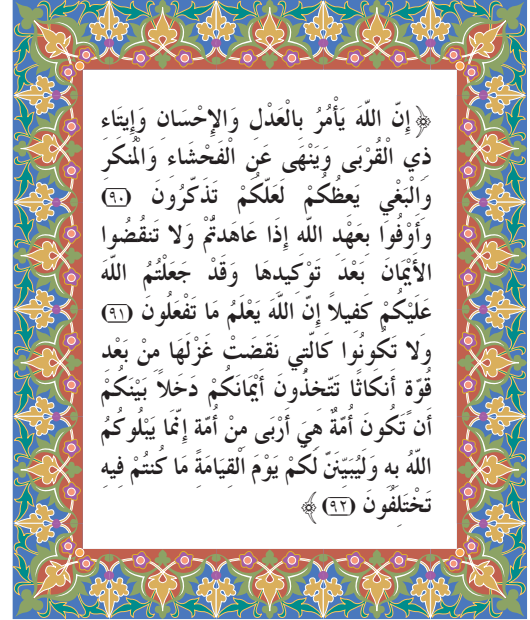 ﴿ إِنّ اللّهَ يَأْمُرُ بالْعَدْل وَالإِحْسَان وَإِيتَاء
ذي الْقُرْبَى وَيَنْهَى عَن الْفَحْشَاء وَالْمُنكَر
وَالْبَغْي يَعظُكُمْ لَعَلّكُمْ تَذَكّرُونَ (٩٠)
وَأَوْفُوا بعَهْد اللّه إذَا عَاهدتُّمْ وَلا تَنقُضُوا
الأَيْمَانَ بَعْدَ تَوْكيدهَا وَقَدْ جَعَلْتُمُ اللّهَ
عَلَيْكُمْ كَفيلاً إنّ اللّهَ يَعْلَمُ مَا تَفْعَلُونَ (٩١)
وَلا تَكُونُوا كَالّتي نَقَضَتْ غَزْلَهَا منْ بَعْد
قُوّة أَنكَاثًا تَتّخذُونَ أَيْمَانَكُمْ دَخَلاً بَيْنَكُمْ
أَن تَكُونَ أُمّةٌ هيَ أَرْبَى منْ أُمّة إنّمَا يَبْلُوكُمُ
اللّهُ به وَلَيُبَيّنَنّ لَكُمْ يَوْمَ الْقيَامَة مَا كُنتُمْ فيه
تَخْتَلفُونَ (٩٢) ﴾